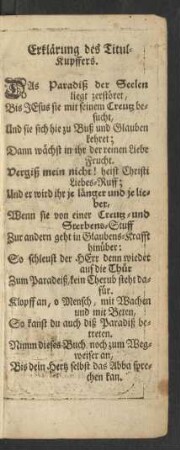 Erklärung des Titul-
Kupffers.
DAs Paradiß der Seelen
liegt zerstöret,
Bis JEsus sie mit seinem Creutz be-
sucht,
Und sie sich hie zu Buß und Glauben
kehret;
Dann wächst in ihr der reinen Liebe
Frucht.
Vergiß mein nicht! heist Christi
Liebes-Ruff;
Und er wird ihr je länger und je lie-
ber.
Wenn sie von einer Creutz- und
Sterbens-Stuff
Zur andern geht in Glaubens-Krafft
hinüber:
So schleust der HErr denn wieder
auf die Thür
Zum Paradeiß, kein Cherub steht da-
für.
Klopff an, o Mensch, mit Wachen
und mit Beten,
So kanst du auch diß Paradiß be-
treten.
Nimm dieses Buch noch zum Weg-
weiser an,
Bis dein Hertz selbst das Abba spre-
chen kan.